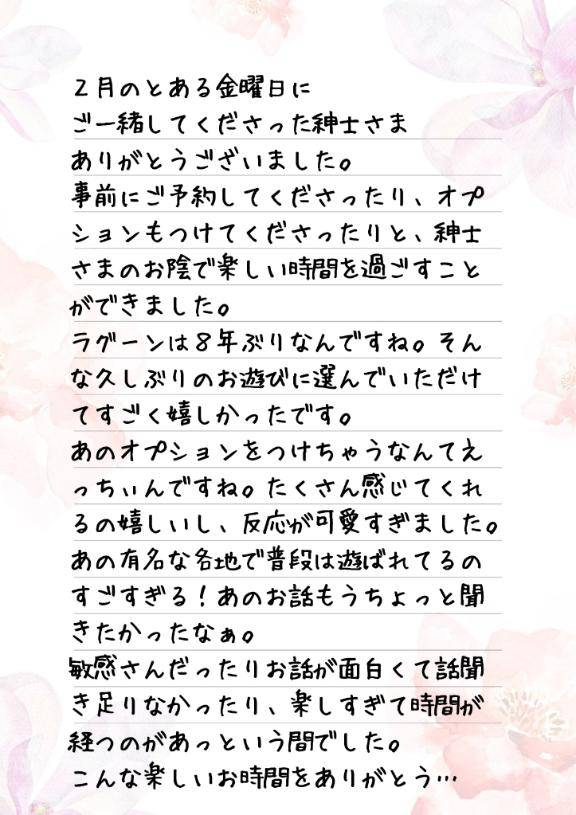 ２月のとある金曜日に
ご一緒してくださった紳士さま
ありがとうございました。
事前にご予約してくださったり、オプ
ションもつけてくださったりと、紳士
さまのお陰で楽しい時間を過ごすこと
ができました。
ラグーンは８年ぶりなんですね。そん
な久しぶりのお遊びに選んでいただけ
てすごく嬉しかったです。
あのオプションをつけちゃうなんてえ
っちぃんですね。たくさん感じてくれ
るの嬉しいし、反応が可愛すぎました。
あの有名な各地で普段は遊ばれてるの
すごすぎる！あのお話もうちょっと聞
きたかったなぁ。
敏感さんだったりお話が面白くて話聞
き足りなかったり、楽しすぎて時間が
経つのがあっという間でした。
こんな楽しいお時間をありがとう…